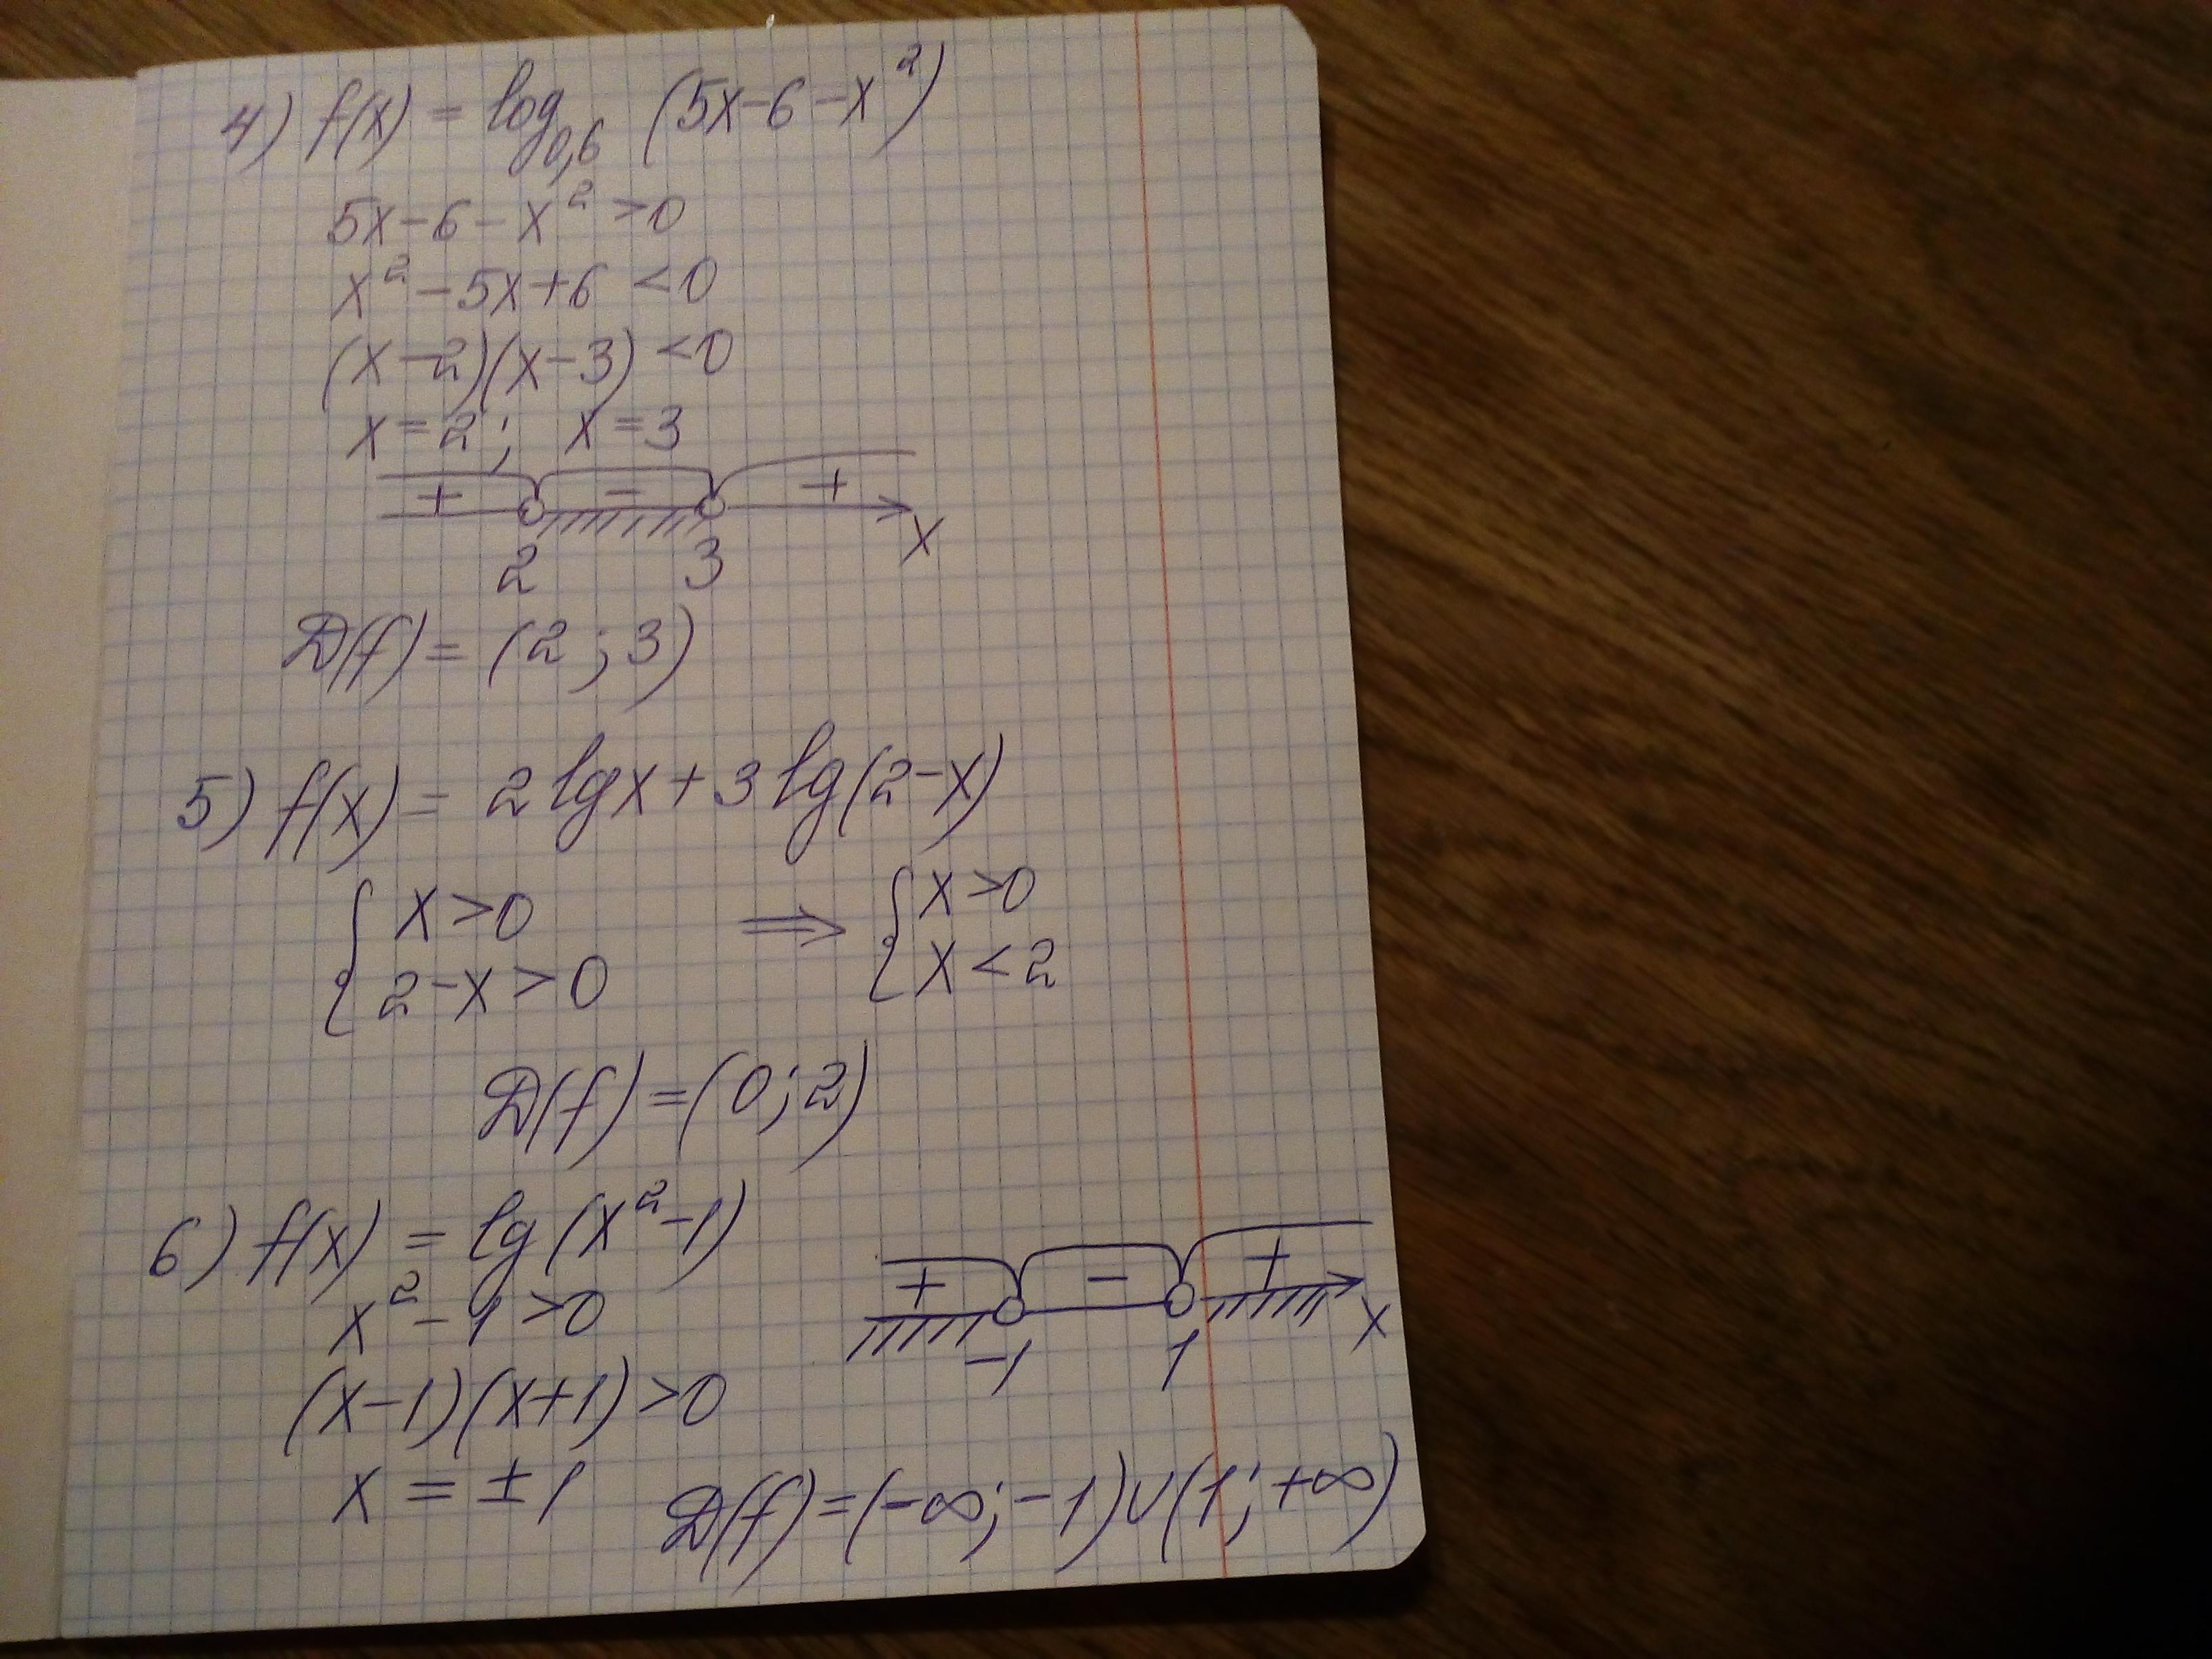 4) f(x) = log₀,₆ (5x-6-x²)
5x-6-x² >0
x²-5x+6 <0
(x-2)(x-3) <0
x=2; x=3
+ - +
2 3 x
D(f) = (2; 3)
5) f(x) = 2lgx + 3lg(2-x)
{ x>0 ⟹ { x>0
2-x>0 x<2
D(f) = (0; 2)
6) f(x) = lg(x²-1)
x²-1>0
+ - +
-1 1 x
(x-1)(x+1)>0
x = ±1 D(f) = (-∞; -1)∪(1; +∞)